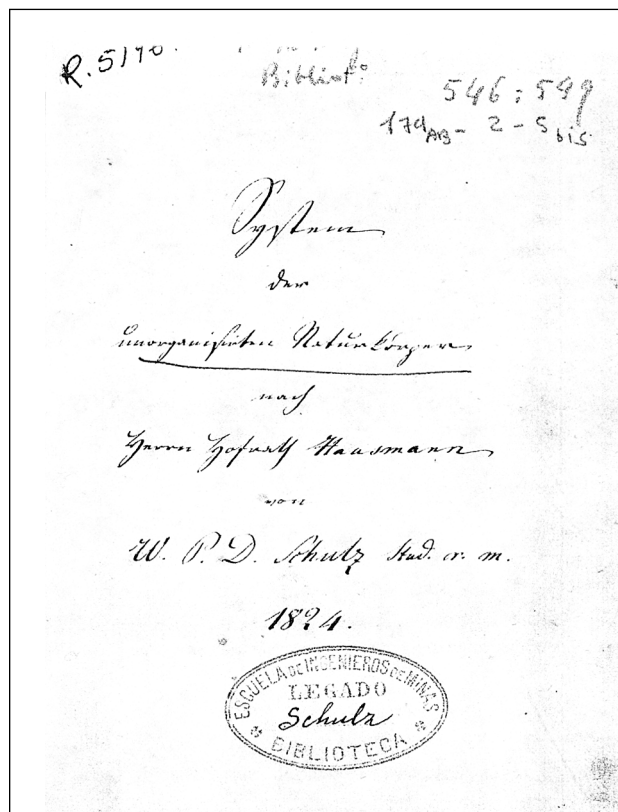 R. 5170.
Bibliot:
546:549
174AB - 2 - 5 bis
System
der
unorganisirten Naturkörper
nach
Herrn Hofrath Hausmann
von
W. P. D. Schulz Stud. r. m.
1824.
ESCUELA DE INGENIEROS DE MINAS
LEGADO
Schulz
* BIBLIOTECA *